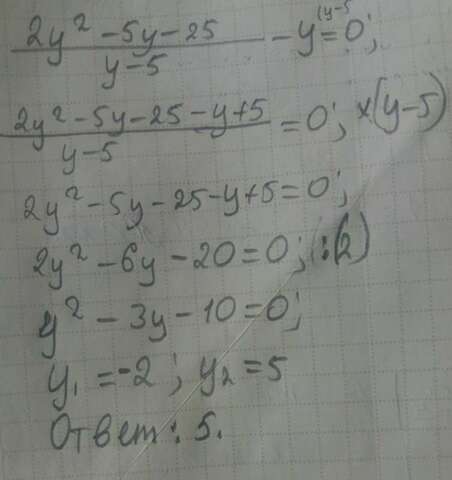 (2y² - 5y - 25)/(y - 5) - y^(y-5 = 0;
(2y² - 5y - 25 - y + 5)/(y - 5) = 0; ×(y-5)
2y² - 5y - 25 - y + 5 = 0;
2y² - 6y - 20 = 0; (:2)
y² - 3y - 10 = 0;
y₁ = -2; y₂ = 5
Ответ: 5.